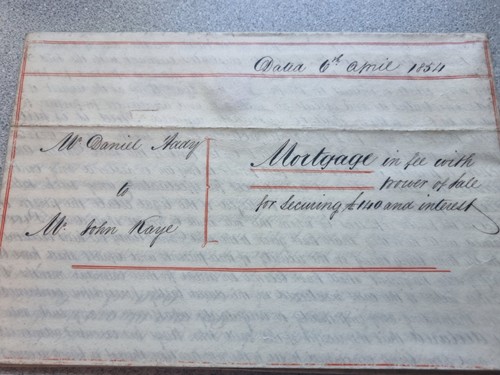 Dated 6th April 1854
Mr Daniel
to
Mr John Kaye
Mortgage in fee with
power of Sale
for securing £140 and interest